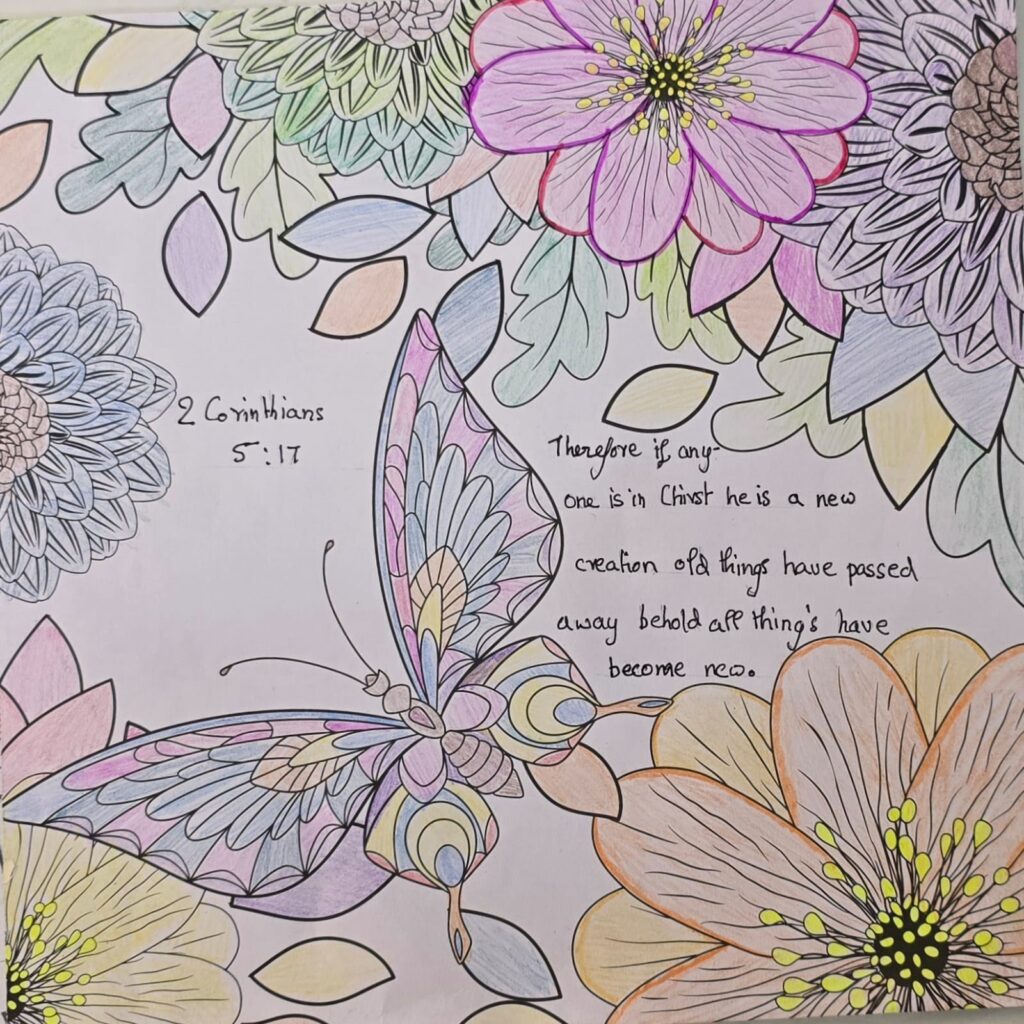 2 Corinthians
5:17
Therefore if any-
one is in Chirst he is a new
creation old things have passed
away behold all thing's have
become new.